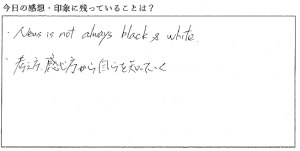 今日の感想・印象に残っていることは？
・News is not always black & white.
・考え方、感じ方から自らを知っていく